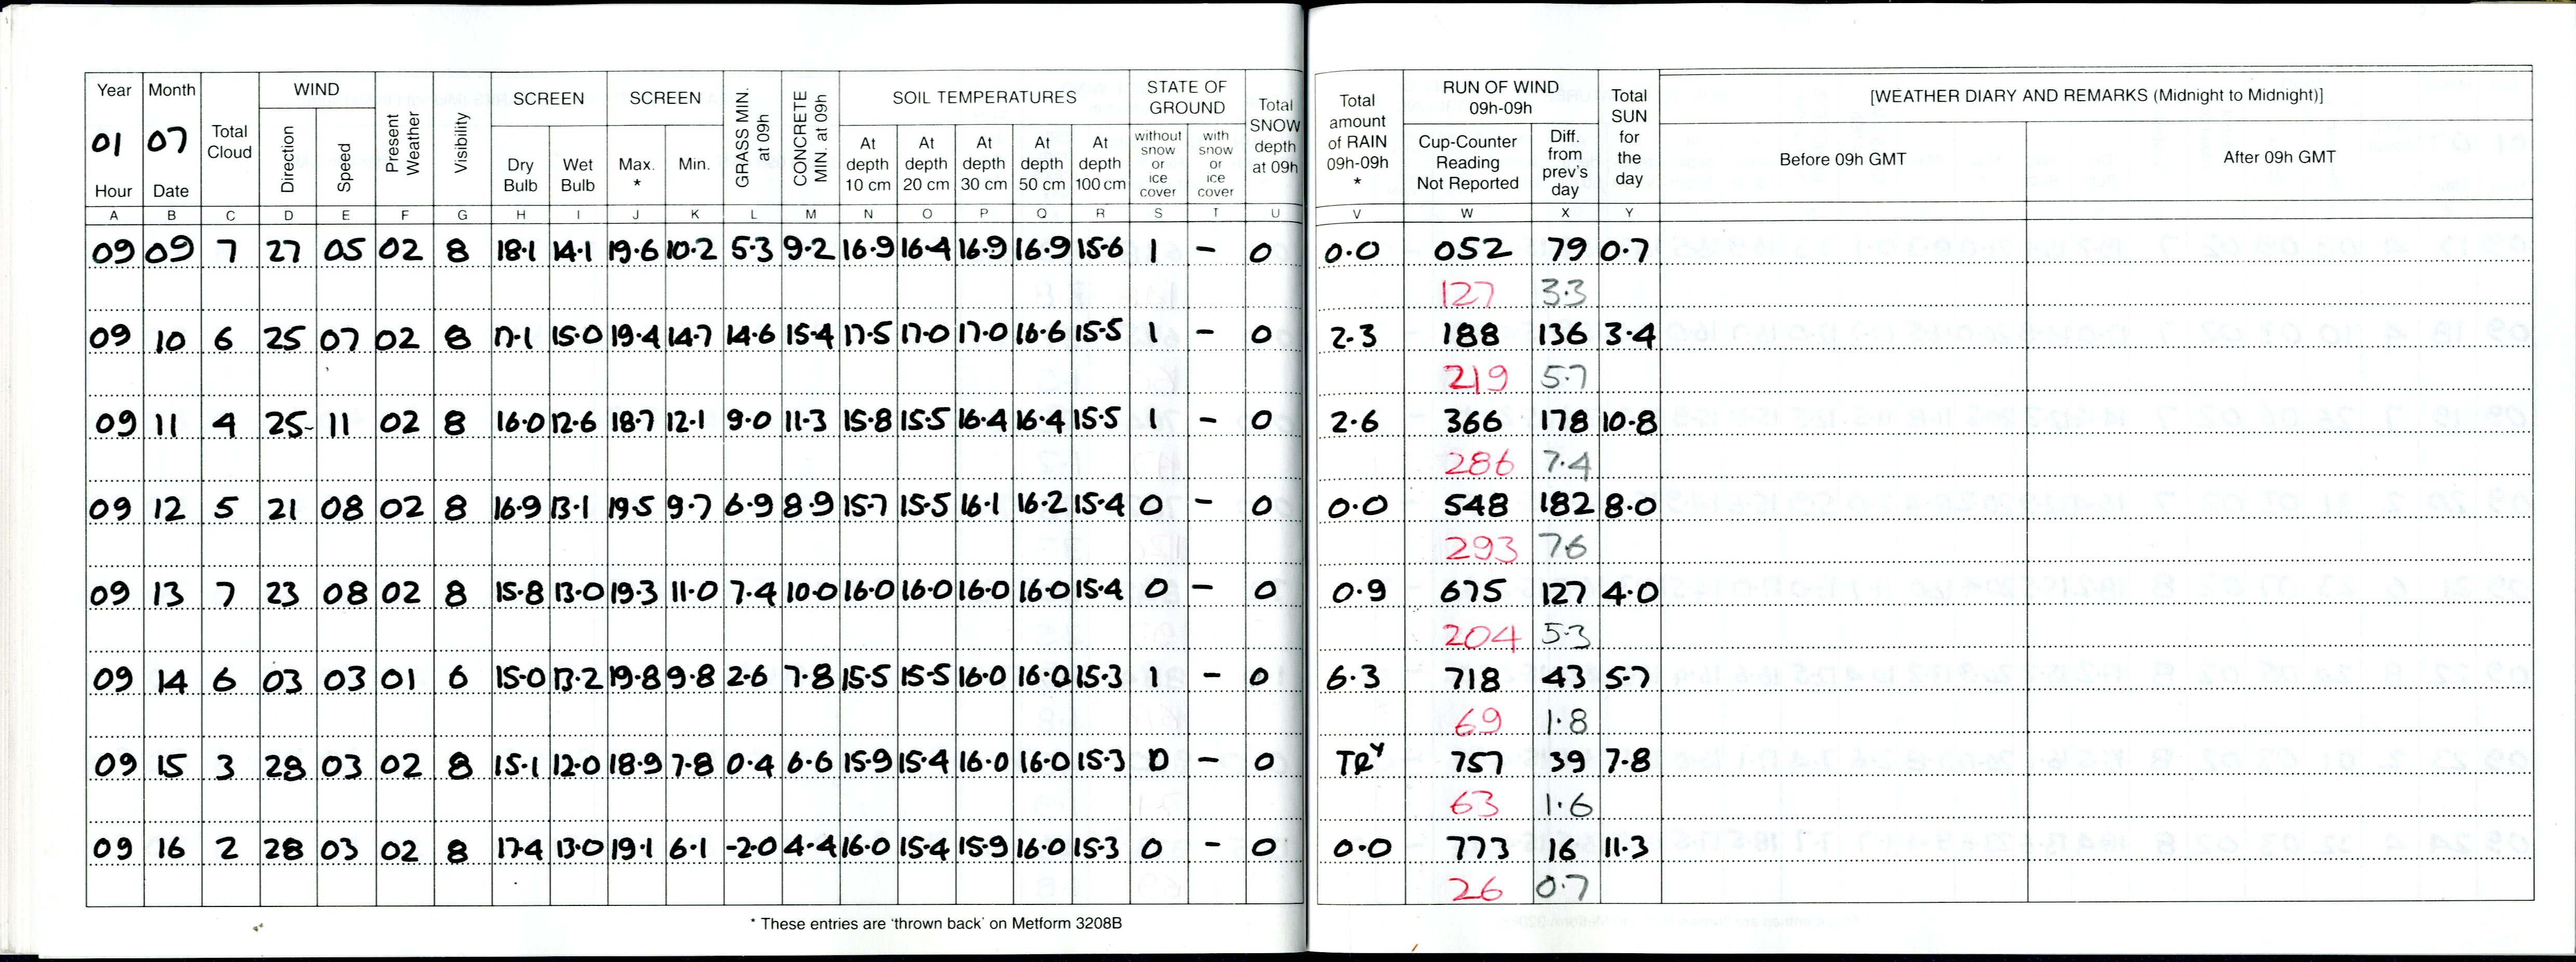 Year Month Total Cloud WIND Present Weather Visibility SCREEN SCREEN GRASS MIN. at 09h CONCRETE MIN. at 09h SOIL TEMPERATURES STATE OF GROUND Total SNOW depth at 09h Total amount of RAIN 09h-09h * RUN OF WIND 09h-09h Total SUN for the day [WEATHER DIARY AND REMARKS (Midnight to Midnight)]
01 07
Hour Date Direction Speed Dry Bulb Wet Bulb Max. * Min. At depth 10 cm At depth 20 cm At depth 30 cm At depth 50 cm At depth 100 cm without snow or ice cover with snow or ice cover Cup-Counter Reading Not Reported Diff. from prev's day Before 09h GMT After 09h GMT
A B C D E F G H I J K L M N O P Q R S T U V W X Y
09 09 7 27 05 02 8 18.1 14.1 19.6 10.2 5.3 9.2 16.9 16.4 16.9 16.9 15.6 1 - 0 0.0 052 79 0.7
127 3.3
09 10 6 25 07 02 8 17.1 15.0 19.4 14.7 14.6 15.4 17.5 17.0 17.0 16.6 15.5 1 - 0 2.3 188 136 3.4
219 5.7
09 11 4 25 11 02 8 16.0 12.6 18.7 12.1 9.0 11.3 15.8 15.5 16.4 16.4 15.5 1 - 0 2.6 366 178 10.8
286 7.4
09 12 5 21 08 02 8 16.9 13.1 19.5 9.7 6.9 8.9 15.7 15.5 16.1 16.2 15.4 0 - 0 0.0 548 182 8.0
293 7.6
09 13 7 23 08 02 8 15.8 13.0 19.3 11.0 7.4 10.0 16.0 16.0 16.0 16.0 15.4 0 - 0 0.9 675 127 4.0
204 5.3
09 14 6 03 03 01 6 15.0 13.2 19.8 9.8 2.6 7.8 15.5 15.5 16.0 16.0 15.3 1 - 0 6.3 718 43 5.7
69 1.8
09 15 3 28 03 02 8 15.1 12.0 18.9 7.8 0.4 6.6 15.9 15.4 16.0 16.0 15.3 0 - 0 TRY 757 39 7.8
63 1.6
09 16 2 28 03 02 8 17.4 13.0 19.1 6.1 -2.0 4.4 16.0 15.4 15.9 16.0 15.3 0 - 0 0.0 773 16 11.3
26 0.7
* These entries are 'thrown back' on Metform 3208B